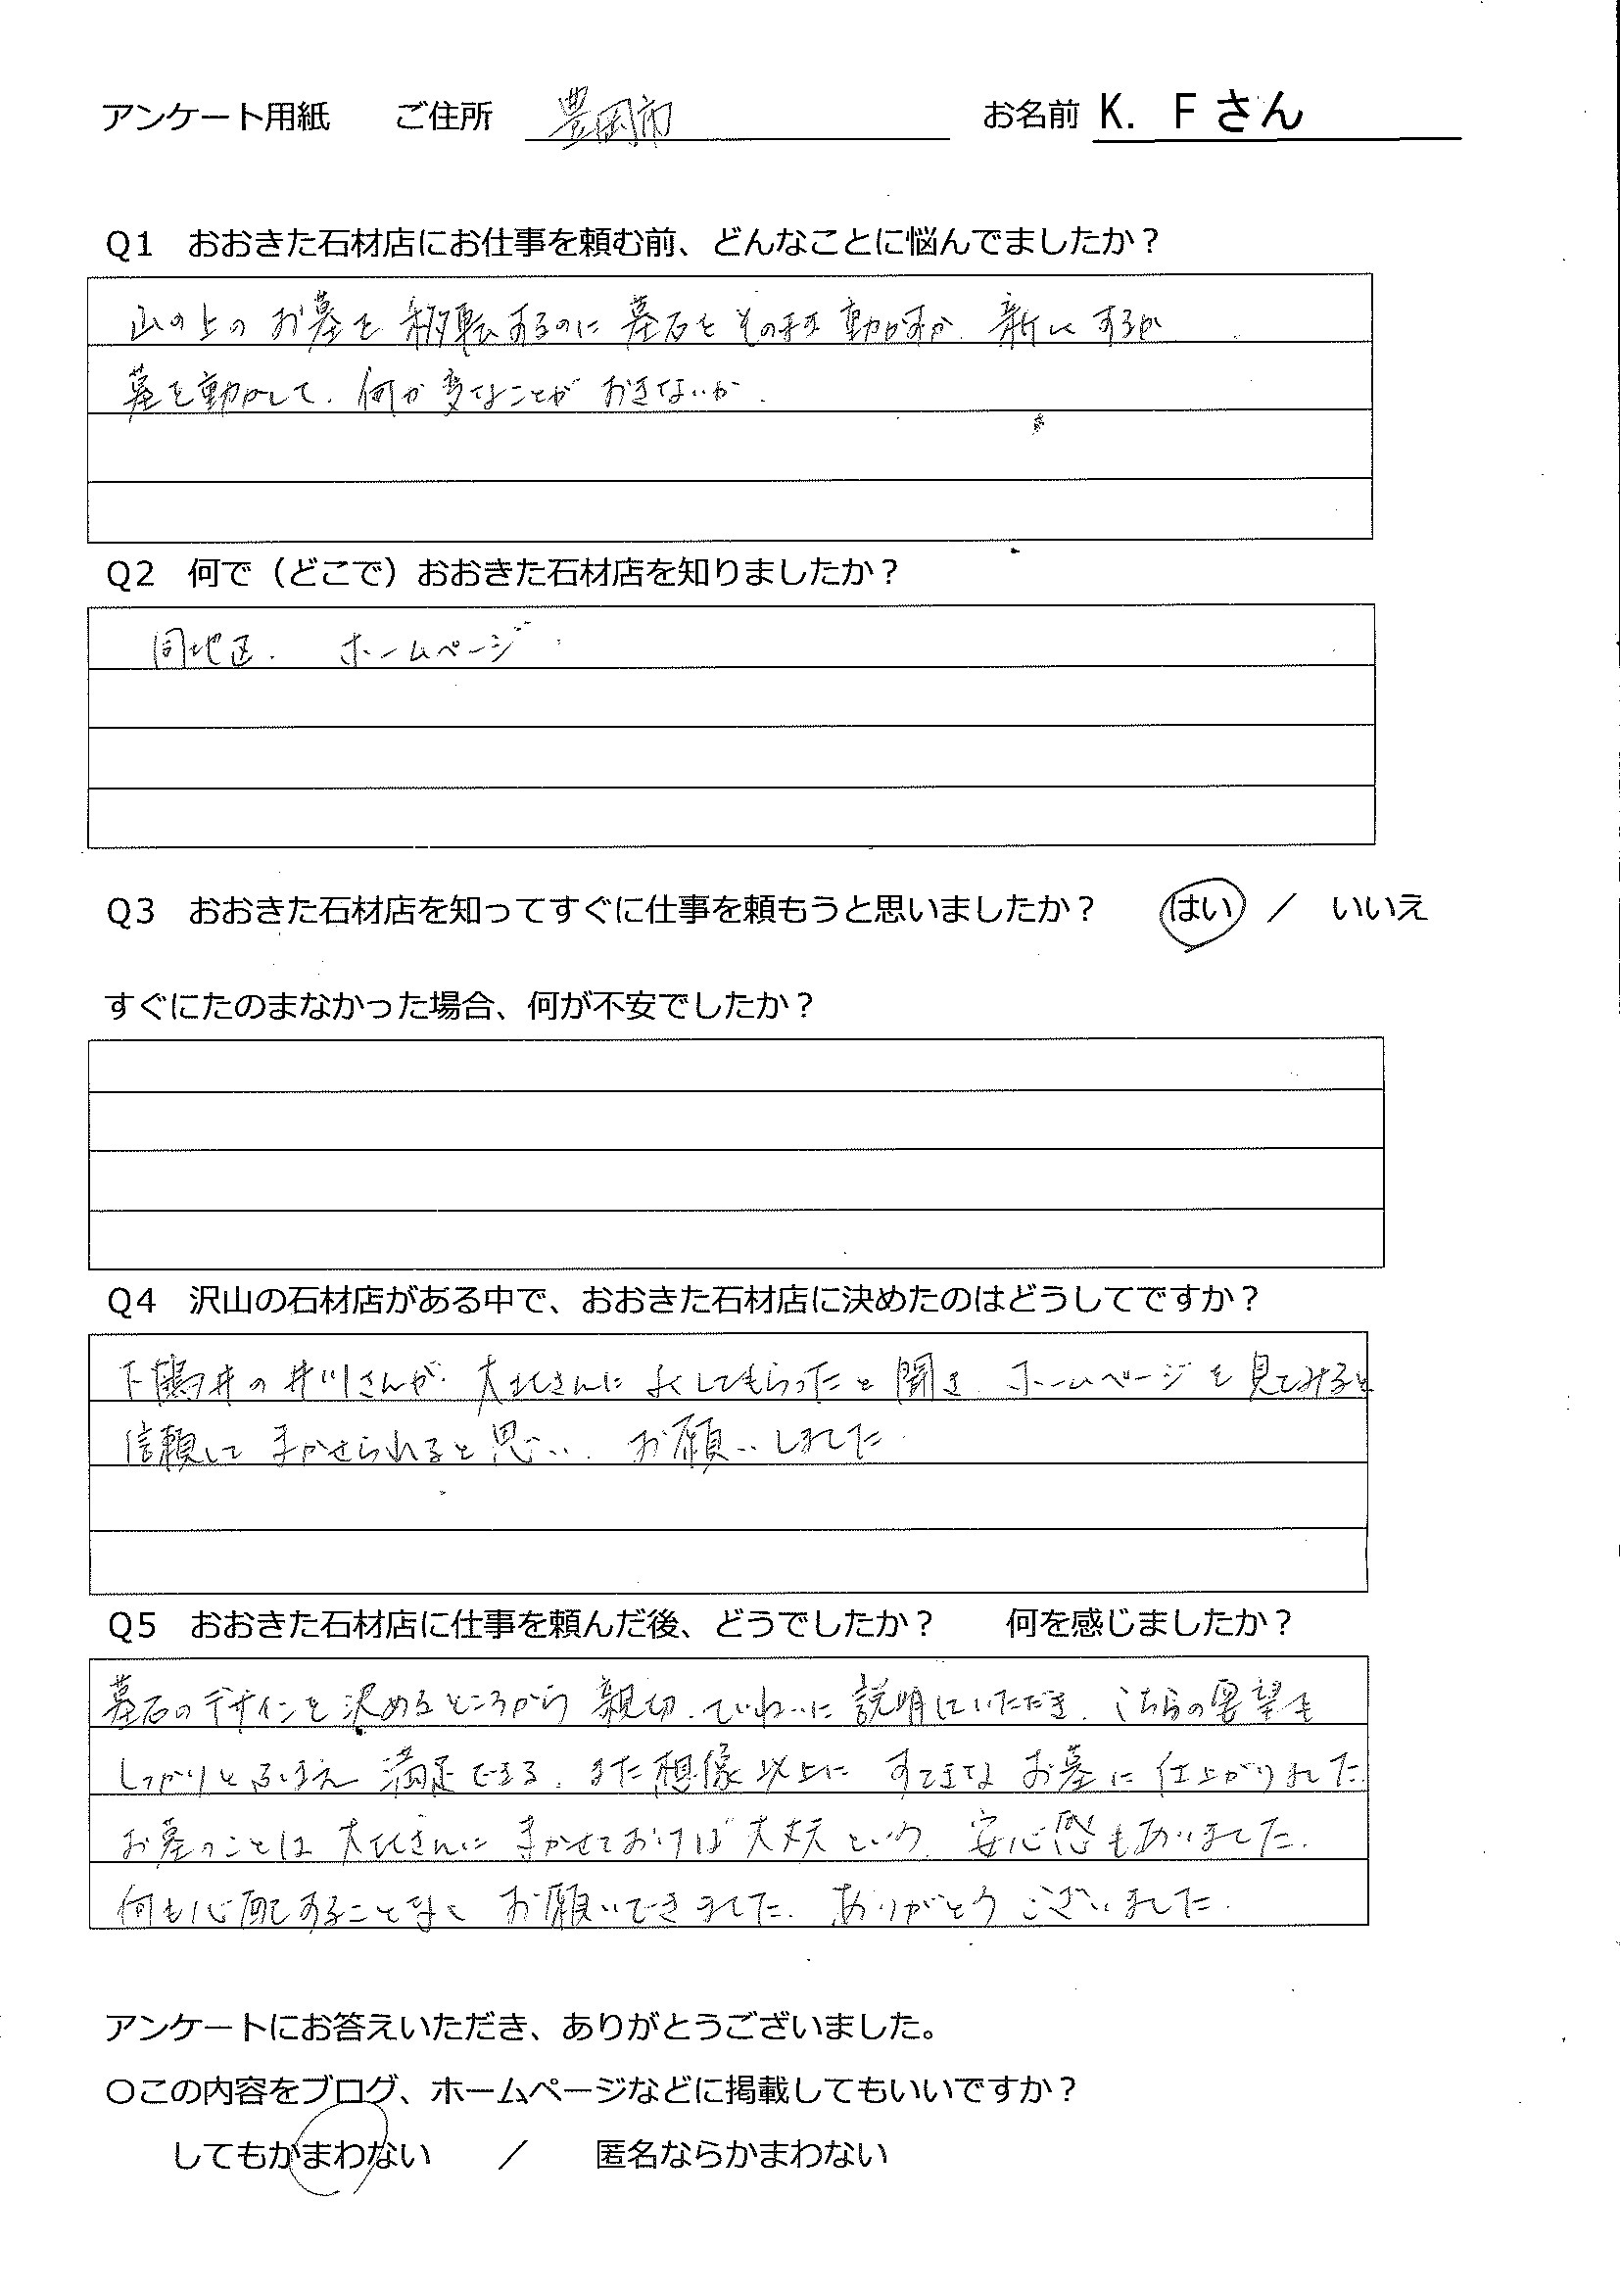 アンケート用紙　ご住所　豊岡市　お名前 K. Fさん
Q1　おおきた石材店にお仕事を頼む前、どんなことに悩んでましたか？
山の上の お墓を 移転するのに 墓石を そのまま 動かすか. 新しくするか
墓を動かして. 何か変なことが おきないか.
Q2　何で（どこで）おおきた石材店を知りましたか？
同地区.　ホームページ
Q3　おおきた石材店を知ってすぐに仕事を頼もうと思いましたか？　はい　／　いいえ
すぐにたのまなかった場合、何が不安でしたか？
Q4　沢山の石材店がある中で、おおきた石材店に決めたのはどうしてですか？
下鶴井の井川さんが. 大北さんに よくしてもらったと 聞き. ホームページを 見てみると
信頼して まかせられると思い. お願いしました
Q5　おおきた石材店に仕事を頼んだ後、どうでしたか？　何を感じましたか？
墓石のデザインを 決めるところから 親切. ていねいに 説明していただき. こちらの要望も
しっかりとふまえ 満足できる. また想像以上に すてきな お墓に 仕上がりました.
お墓のことは 大北さんに まかせておけば 大丈夫という. 安心感もありました.
何も心配することなく お願いできました. ありがとうございました.
アンケートにお答えいただき、ありがとうございました。
〇この内容をブログ、ホームページなどに掲載してもいいですか？
してもかまわない　／　匿名ならかまわない